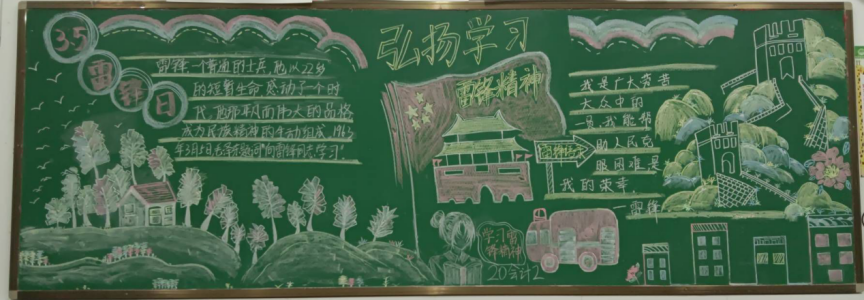 3.5
雷锋日
弘扬学习
雷锋精神
雷锋一个普通的士兵,他以22岁
的短暂生命感动了一个时
代,他那平凡而伟大的品格
成为民族精神的生动组成,1963
年3月5日毛
向雷锋同志学习"
我是广大劳苦
大众中的
一员,我能帮
助人民克
服困难是
我的荣幸.
—雷锋
学习雷
锋精神
20会计2